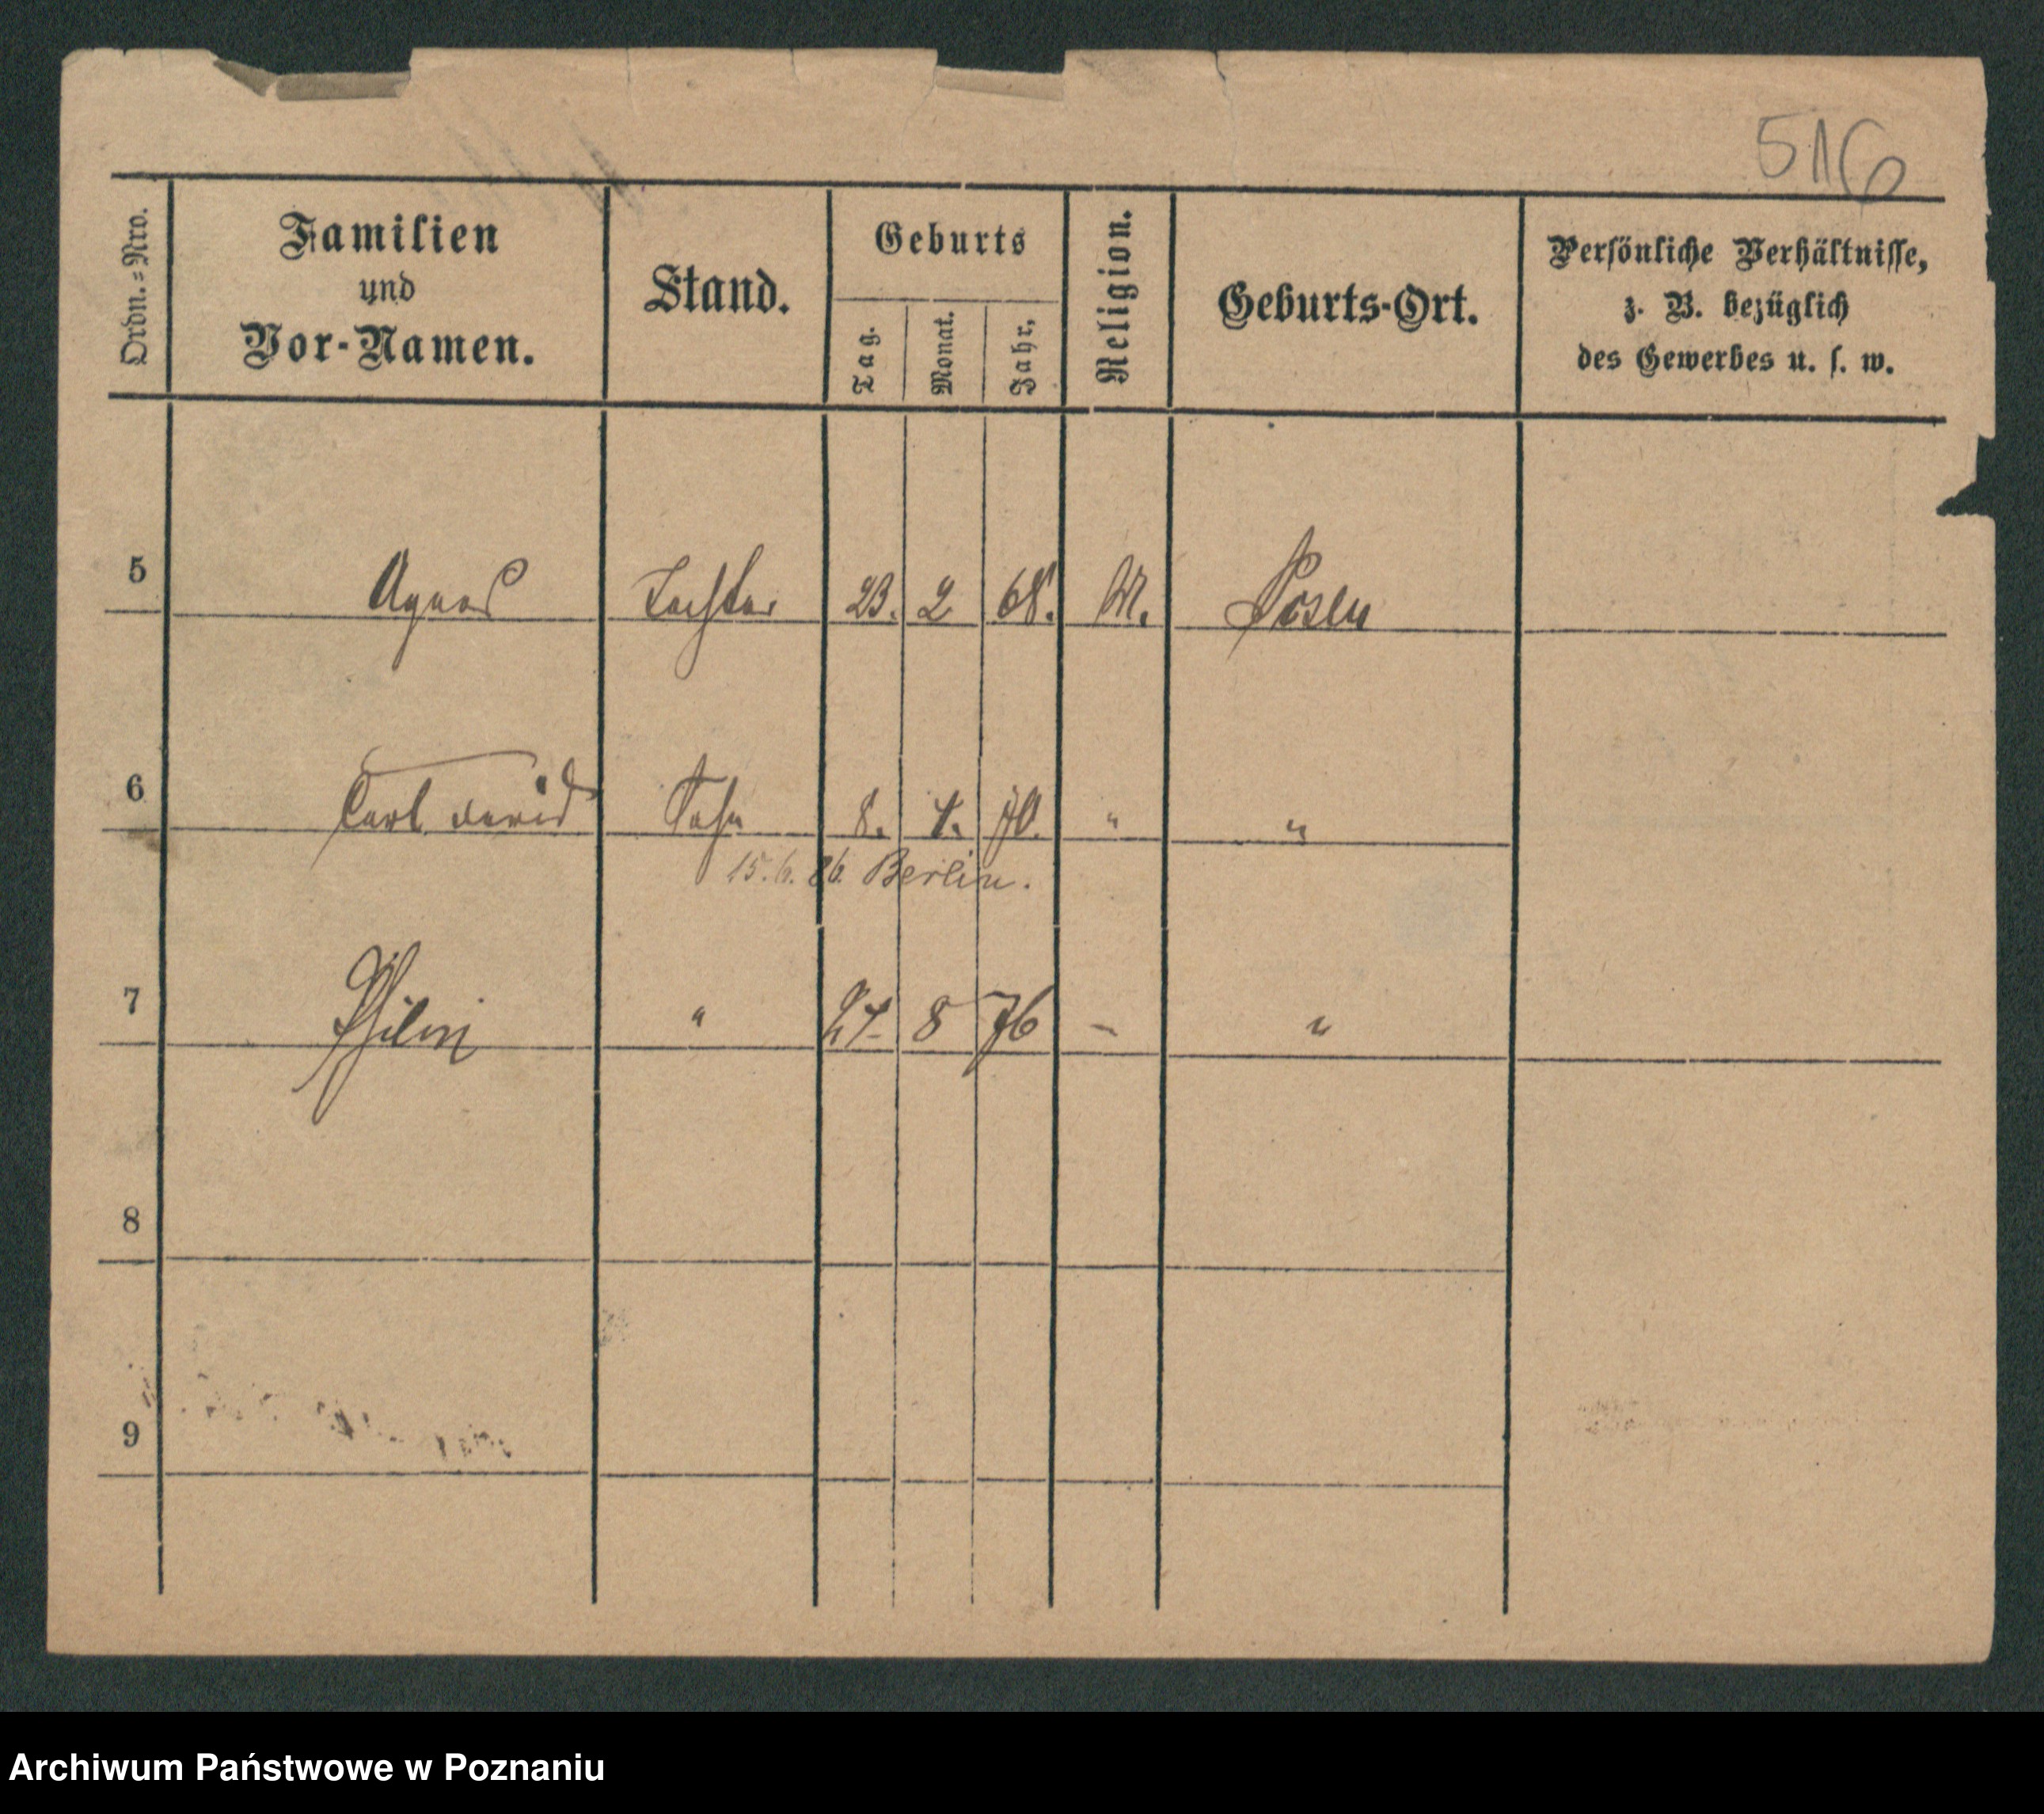 516
Ordn.=Nro.
Familien
und
Vor-Namen.
Stand.
Geburts
Tag.
Monat.
Jahr,
Religion.
Geburts-Ort.
Persönliche Verhältnisse,
z. B. bezüglich
des Gewerbes u. s. w.
5 Agnes Tochter 23. 2 68. M. Posen
6 Carl David Sohn 8. 1. 70. " "
15. 6. 86. Berlin.
7 " 8 76 - "
8
9
Archiwum Państwowe w Poznaniu